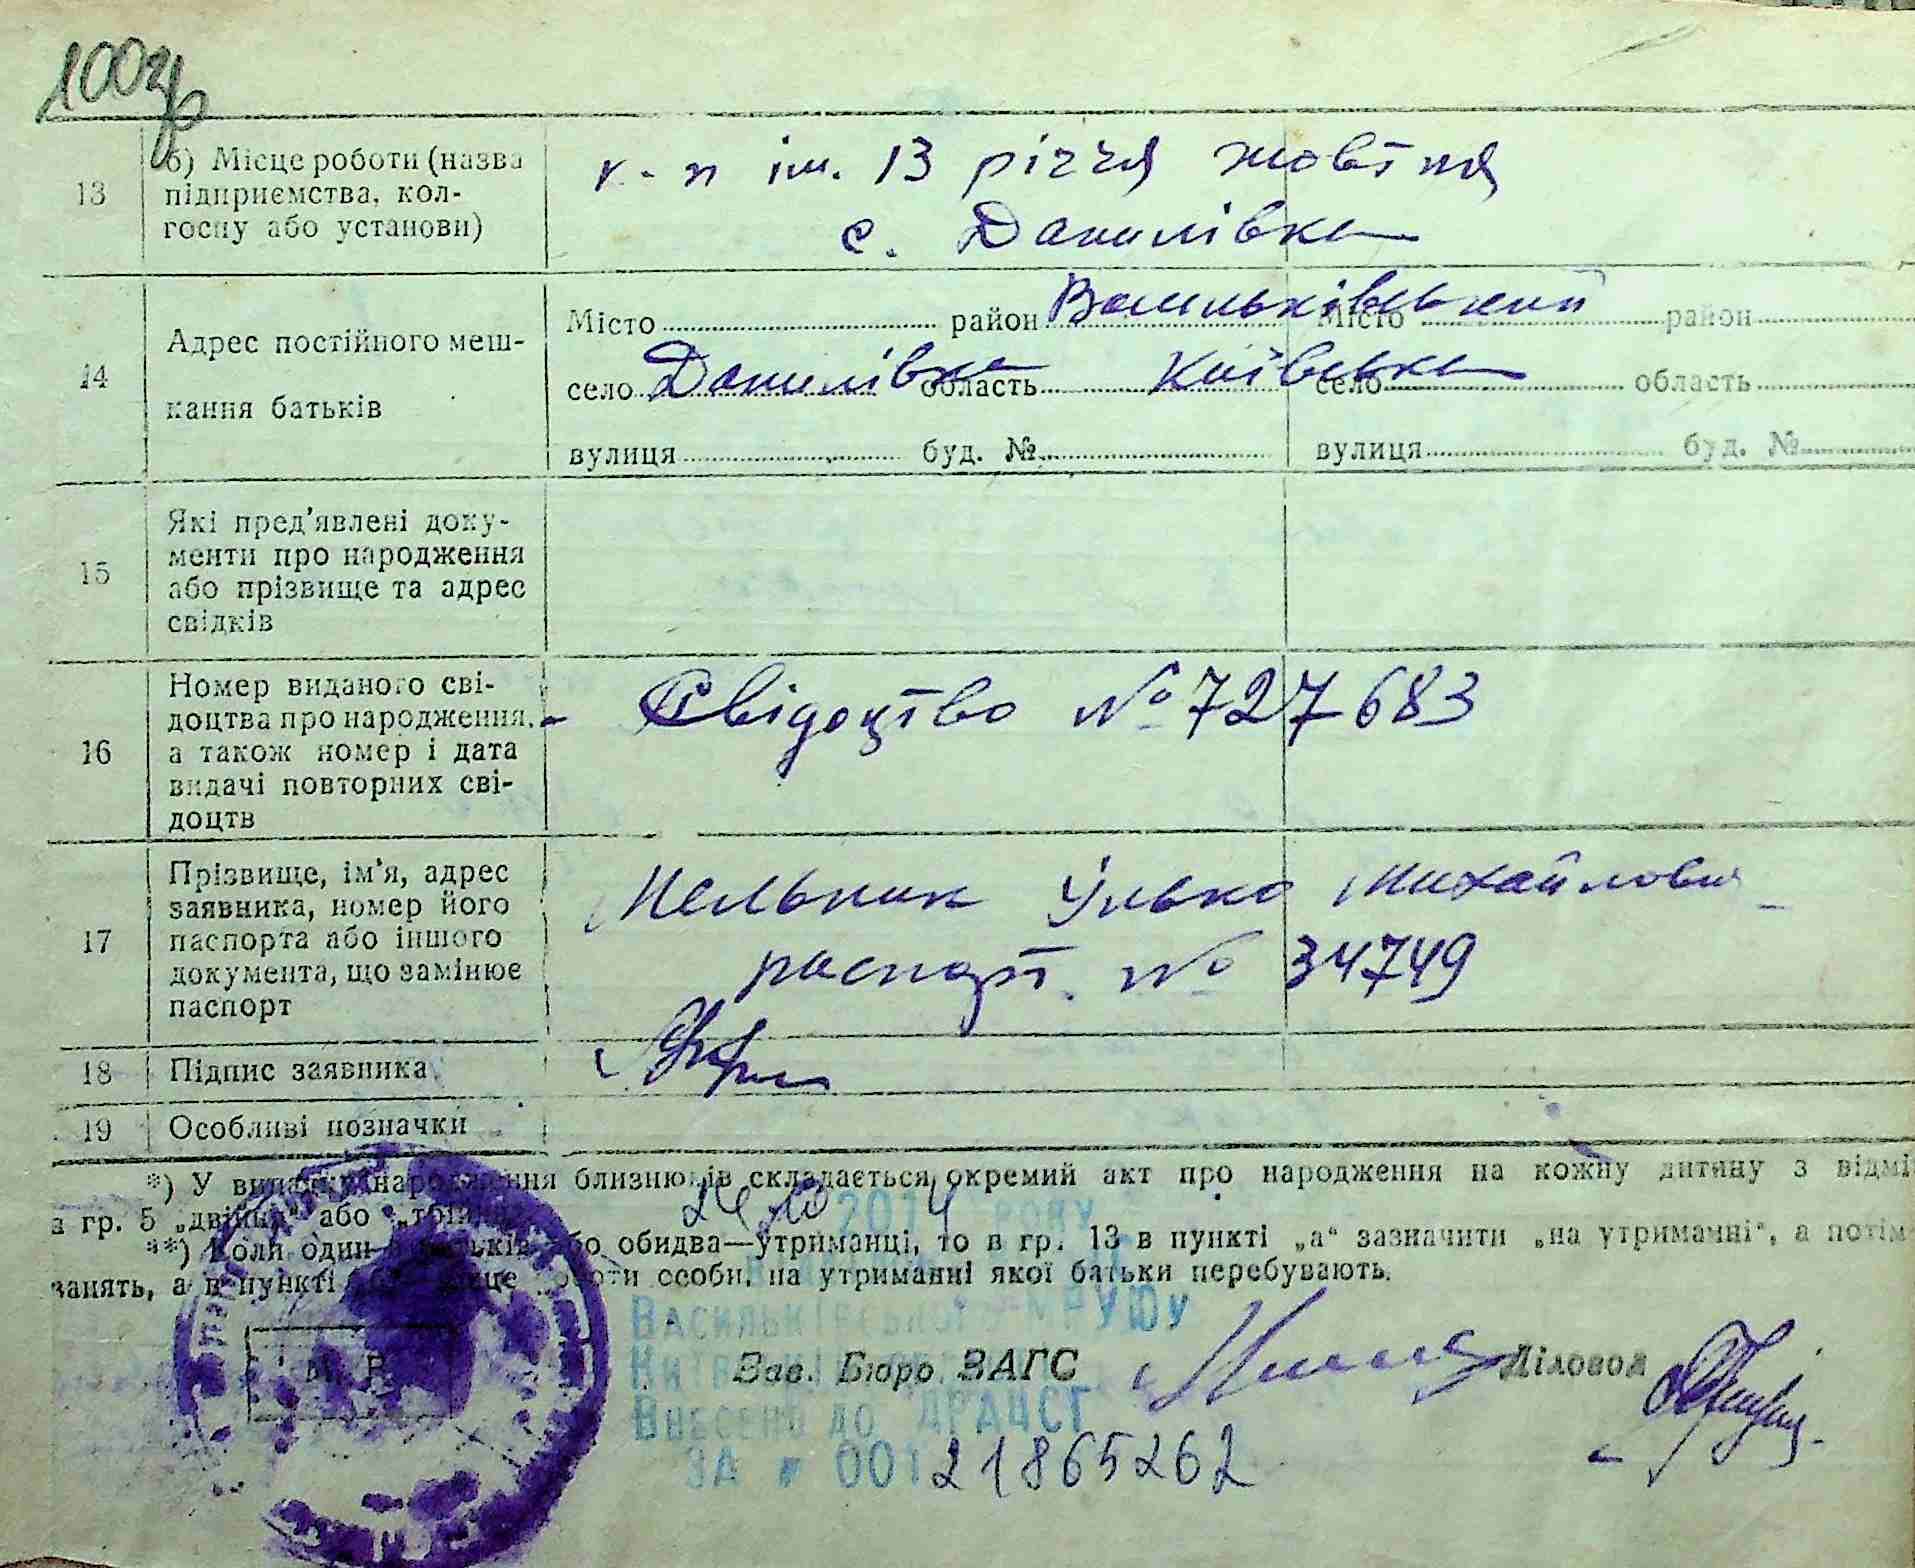 100зв
13
б) Місце роботи (назва підприємства, колгоспу або установи)
к-п ім. 13 річчя жовтня
с. Данилівка
14
Адрес постійного мешкання батьків
Місто район Васильківський Місто район
село Данилівка область Київська село область
вулиця буд. № вулиця буд. №
15
Які пред'явлені документи про народження або прізвище та адрес свідків
16
Номер виданого свідоцтва про народження, а також номер і дата видачі повторних свідоцтв
Свідоцтво № 727683
17
Прізвище, ім'я, адрес заявника, номер його паспорта або іншого документа, що замінює паспорт
Мельник Улько Михайлович
паспорт. № 34749
18
Підпис заявника
19
Особливі позначки
*) У випадку народження близнюків складається окремий акт про народження на кожну дитину з відмі
в гр. 5 „двійня" або „трійня"
**) Коли один з батьків або обидва—утриманці, то в гр. 13 в пункті „а" зазначити „на утриманні", а потім
занять, а в пункті місце роботи особи, на утриманні якої батьки перебувають.
24 10 2014 року
Васильківського МРУЮ
Зав. Бюро ЗАГС
Діловод
М. П.
Внесено до ДРАЦСГ
за № 00121865262